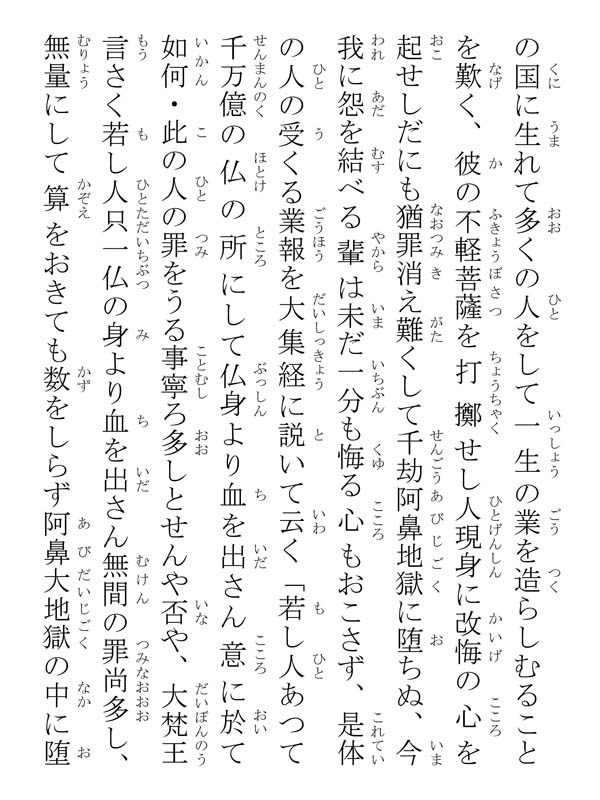 の国に生れて多くの人をして一生の業を造らしむること
を歎く、彼の不軽菩薩を打擲せし人現身に改悔の心を
起せしだにも猶罪消え難くして千劫阿鼻地獄に堕ちぬ、今
我に怨を結べる輩は未だ一分も悔る心もおこさず、是体
の人の受くる業報を大集経に説いて云く「若し人あつて
千万億の仏の所にして仏身より血を出さん意に於て
如何・此の人の罪をうる事寧ろ多しとせんや否や、大梵王
言さく若し人只一仏の身より血を出さん無間の罪尚多し、
無量にして算をおきても数をしらず阿鼻大地獄の中に堕